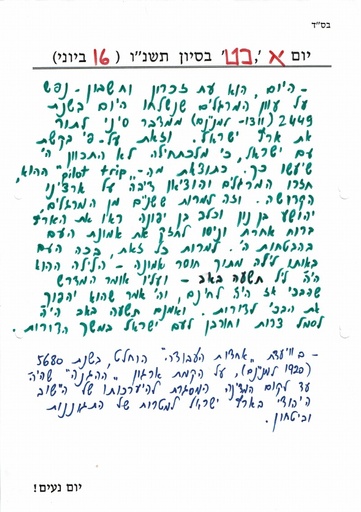 בס"ד
יום א', כט' בסיון תשנ"ו ( 16 ביוני)
- היום, הוא עת זכרון וחשבון-נפש
על עוון המרגלים שנשלחו היום בשנת
2449 למנ"ם) ממדבר סיני לתור
את ארץ ישראל. וזאת על-פי בקשת
עם ישראל, כי מלכתחילה לא התכוון ה'
שיעשו כך. כתוצאת מה-"pilot trip" ההוא,
חזרו המרגלים והוציאו דיבה על ארצינו
הקדושה. וזה למרות ששנים מן המרגלים,
יהושע בן נון וכלב בן יפונה ראו את הארץ
ברוח אחרת וניסו לחזק את אמונת העם
בהבטחות ה'. למרות כל זאת, בכה העם
באותו לילה מתוך חוסר אמונה - הלילה ההוא
היה ליל תשעה באב - ועליו אומר המדרש
שהבכי אז היה לחינם, וה' אמר שהוא יהפוך
את הבכי לדורות. ואמנם תשעה באב היה
לסמל צרות וחורבן לעם ישראל במשך הדורות.
- בוועידת "אחדות העבודה" הוחלט, בשנת 5680
(1920 למנינם), על הקמת ארגון "ההגנה" שהיה
עד לקום המדינה המסגרת להיערכותו של הישוב
היהודי בארץ ישראל למטרות של התגוננות
וביטחון.
יום נעים!